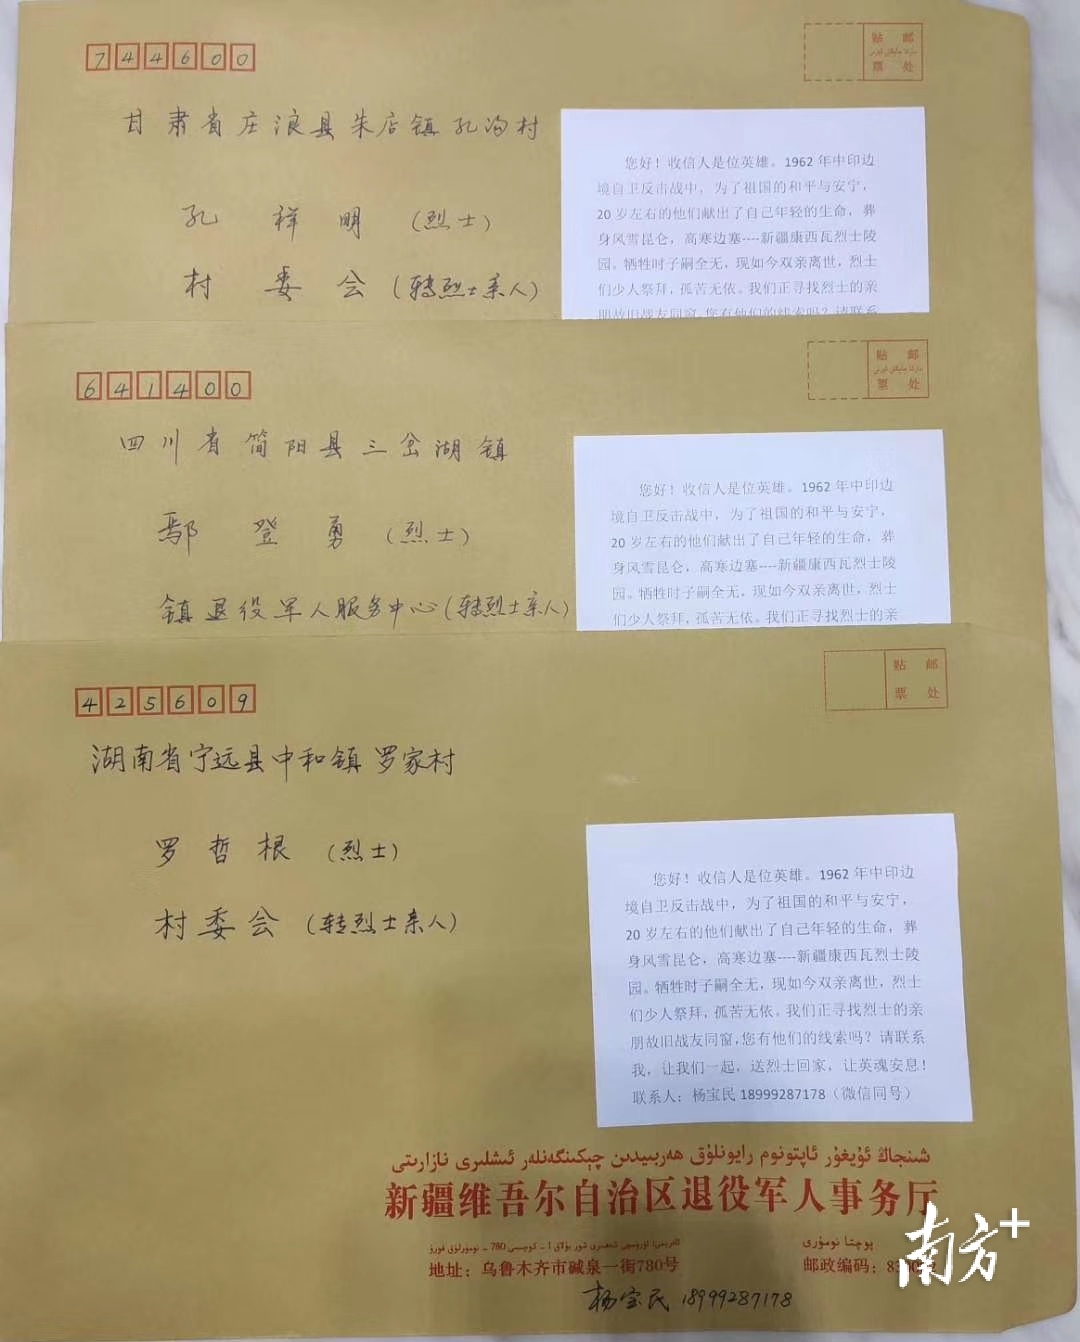 744600
贴 邮
票 处
甘肃省庄浪县朱店镇孔沟村
孔祥明（烈士）
村委会（转烈士亲人）
您好！收信人是位英雄。1962年中印边
境自卫反击战中，为了祖国的和平与安宁，
20岁左右的他们献出了自己年轻的生命，葬
身风雪昆仑，高寒边塞----新疆康西瓦烈士陵
园。牺牲时子嗣全无，现如今双亲离世，烈士
们少人祭拜，孤苦无依。我们正寻找烈士的亲
朋故旧战友同窗，您有他们的线索吗？请联系
641400
贴 邮
票 处
四川省简阳县三岔湖镇
鄢登勇（烈士）
镇退役军人服务中心（转烈士亲人）
您好！收信人是位英雄。1962年中印边
境自卫反击战中，为了祖国的和平与安宁，
20岁左右的他们献出了自己年轻的生命，葬
身风雪昆仑，高寒边塞----新疆康西瓦烈士陵
园。牺牲时子嗣全无，现如今双亲离世，烈士
们少人祭拜，孤苦无依。我们正寻找烈士的亲
425609
贴 邮
票 处
湖南省宁远县中和镇罗家村
罗哲根（烈士）
村委会（转烈士亲人）
您好！收信人是位英雄。1962年中印边
境自卫反击战中，为了祖国的和平与安宁，
20岁左右的他们献出了自己年轻的生命，葬
身风雪昆仑，高寒边塞----新疆康西瓦烈士陵
园。牺牲时子嗣全无，现如今双亲离世，烈士
们少人祭拜，孤苦无依。我们正寻找烈士的亲
朋故旧战友同窗，您有他们的线索吗？请联系
我，让我们一起，送烈士回家，让英魂安息！
联系人：杨宝民 18999287178（微信同号）
شىنجاڭ ئۇيغۇر ئاپتونوم رايونلۇق ھەربىيدىن چېكىنگەنلەر ئىشلىرى نازارىتى
新疆维吾尔自治区退役军人事务厅
پوچتا نومۇرى
地址：乌鲁木齐市碱泉一街780号
邮政编码：
杨宝民 18999287178
南方+